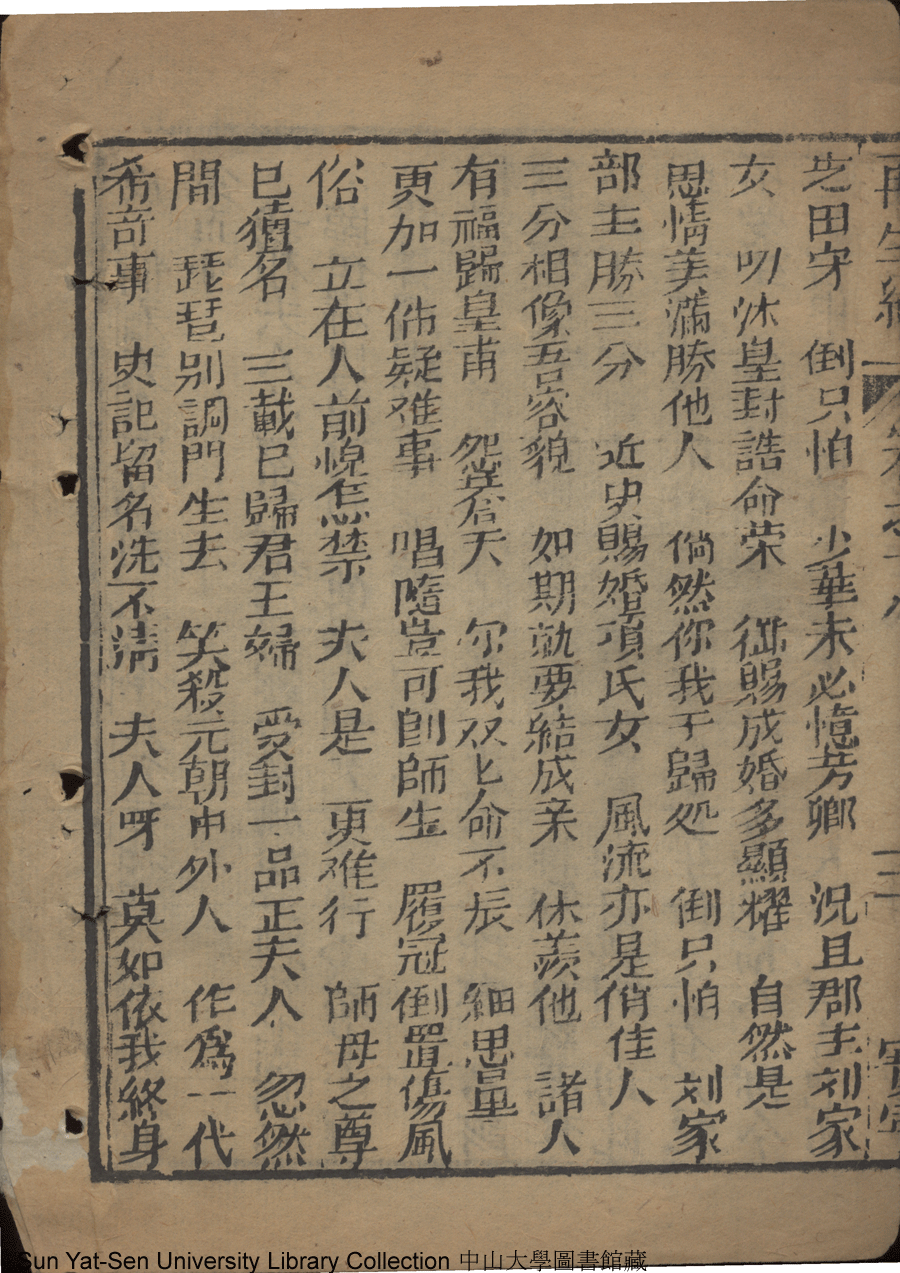 再生緣
芝田守　倒只怕　少華未必憶芳卿　況且郡主刘家
女　叨沐皇封誥命荣　御賜成婚多顯耀　自然是
恩情美滿勝他人　倘然你我于歸処　倒只怕　刘家
部主勝三分　近史賜婚項氏女　風流亦是俏佳人
三分相像吾容貌　如期就要結成亲　休羨他　諸人
有福歸皇甫　怨蒼天　尔我双匕命不辰　細思量
更加一件疑难事　唱隨豈可即師生　履冠倒置傷風
俗　立在人前怎禁　夫人是　更难行　師母之尊
已猶名　三載已歸君王婦　受封一品正夫人　忽然
間　琵琶别調門生去　笑殺元朝中外人　作爲一代
希奇事　史記留名洗不清　夫人呀　莫如依我終身
Sun Yat-Sen University Library Collection 中山大學圖書館藏